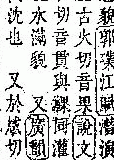 貌郭璞江賦潛演
古火切音果說文
切音貫與祼同灌
水滿貌　又廣韻
沈也　又於感切